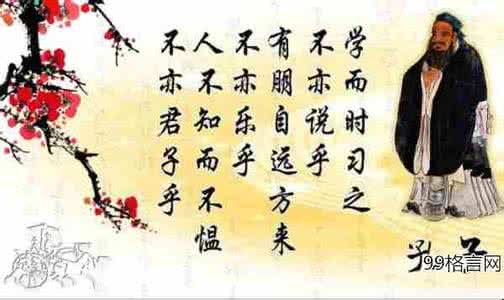 学而时习之
不亦说乎
有朋自远方来
不亦乐乎
人不知而不愠
不亦君子乎
孔子
99格言网